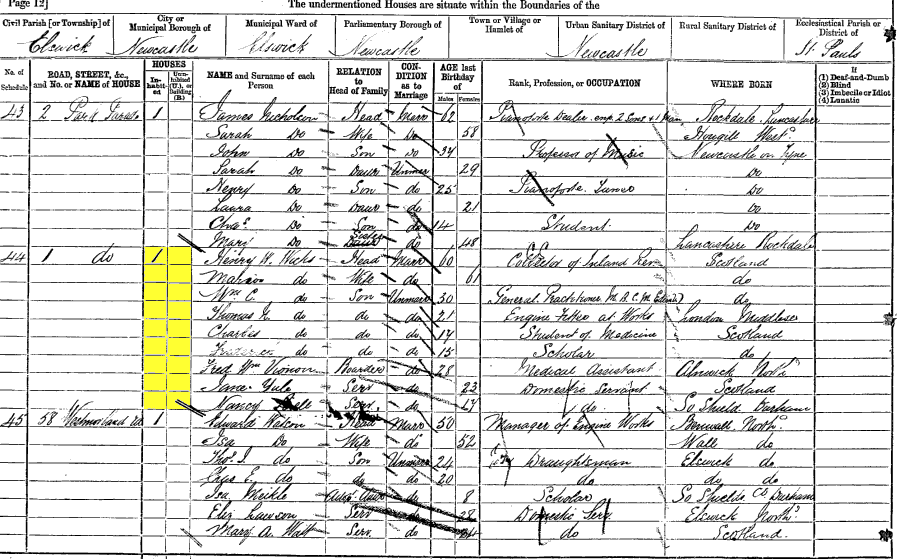 Page 12] The undermentioned Houses are situate within the Boundaries of the
Civil Parish [or Township] of City or Municipal Borough of Municipal Ward of Parliamentary Borough of Town or Village or Hamlet of Urban Sanitary District of Rural Sanitary District of Ecclesiastical Parish or District of
Elswick Newcastle Elswick Newcastle Newcastle St. Pauls
No. of Schedule ROAD, STREET, &c., and No. or NAME of HOUSE HOUSES Inhabited Uninhabited (U.), or Building (B.) NAME and Surname of each Person RELATION to Head of Family CONDITION as to Marriage AGE last Birthday of Males Females Rank, Profession, or OCCUPATION WHERE BORN If (1) Deaf-and-Dumb (2) Blind (3) Imbecile or Idiot (4) Lunatic
43 2 Park 1 James Nicholson Head Marr 62 Pianoforte Dealer emp 2 Sons + 1 man Rochdale Lancashire
Sarah Do Wife Do 58
John Do Son Do 34 Professor of Music Newcastle on Tyne
Sarah Do Daur Unmar 29 Do
Henry Do Son do 25 Pianoforte Tuner Do
Laura Do Daur do 21 Do
Chas. Do Son do 14 Student Do
Mary Do Sister do 48 Lancashire Rochdale
44 1 do 1 Henry W. Head Marr 60 Collector of Inland Rev Scotland
Marion do Wife do 61 do
Wm C. do Son Unmarr 30 General Practitioner do
Thomas do do do 21 Engine Fitter at Works London Middlesex
Charles do do do 17 Student of Medicine Scotland
do do do 15 Scholar do
Fred Wm Vernon Boarder do 28 Medical Assistant Alnwick North
Jane Yule Serv do 23 Domestic Servant Scotland
Nancy Serv. do 17 do So Shield Durham
45 58 Westmorland 1 Edward Watson Head Marr 50 Manager of Engine Works North.
Isa Do Wife do 52 Wall do
Thos. J. do Son Unmarr 24 Draughtsman Elswick do
Chas E. do do do 20 do do do
Isa Meikle do 8 Scholar So Shields Co Durham
Eliz Lawson Serv do 28 Domestic Serv. Elswick North
Mary A. Watt Serv. do do Scotland.